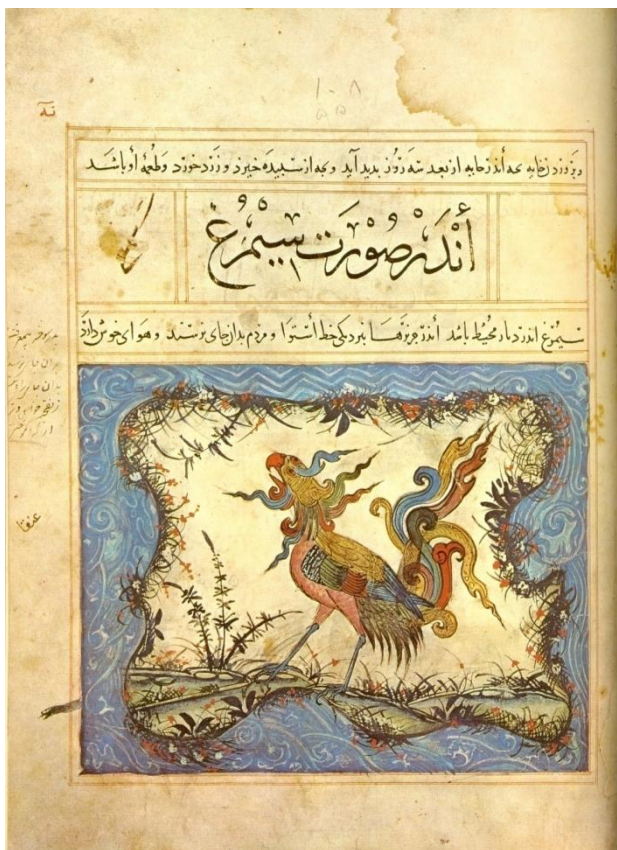 نه
۱۰۸
۵۵
و زرد زخایه بچه أندر خایه از بعد سه روز بدید آید و بچه از سبیده خیزد و زرد خورد و طعمهٔ أو باشد
أندر صورت سیمرغ
سیمرغ اندر دیار محیط باشد أندر جزیرها نزدیکی خط أستوا و مردم بدان جای نرسند و هوای خوش دارد
عنقا